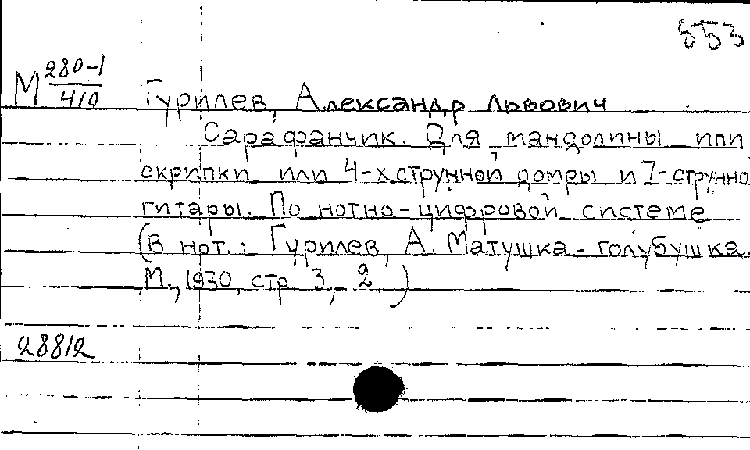 853
М 280-1/410
Гурилев, Александр Львович
Сарафанчик. Для мандолины или
скрипки или 4-хструнной домры и 7-струнно
гитары. По нотно-цифровой системе
(В нот.: Гурилев, А. Матушка-голубушка.
М., 1930, стр. 3, 2.)
28812